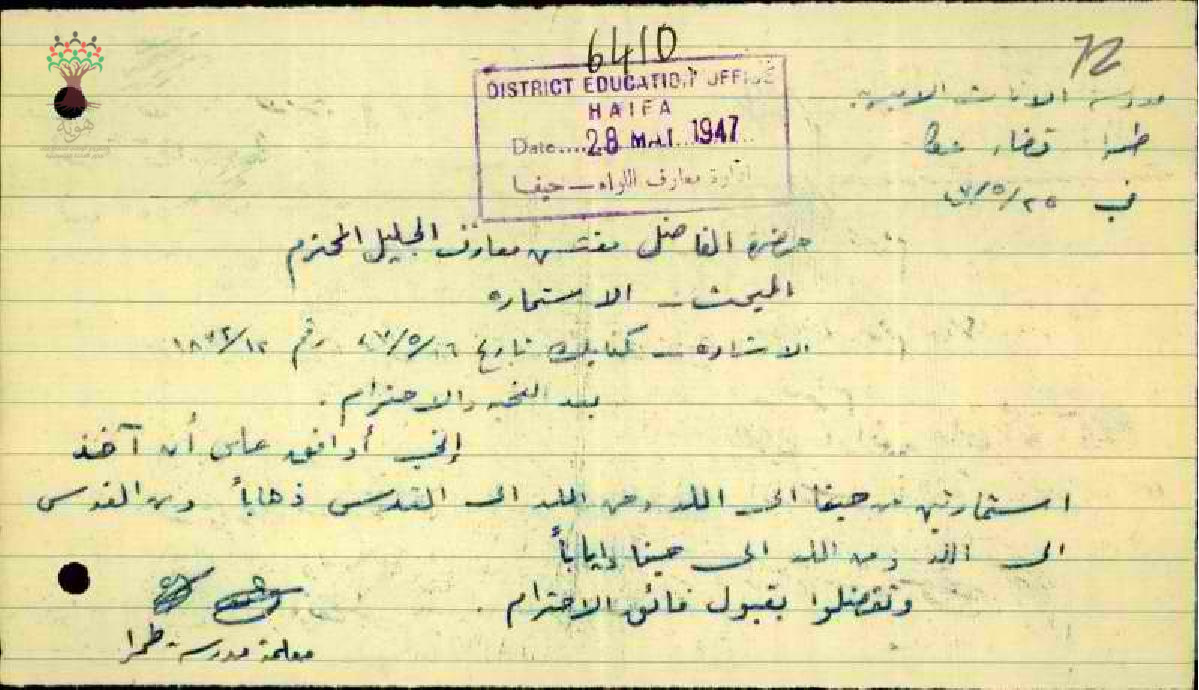 6410
72
DISTRICT EDUCATION OFFICE
HAIFA
Date....28 MAI 1947
ادارة معارف اللواء - حيفا
مدرسة الاناث الاميرية
طمرا قضاء عكا
في ٢٥/٥/٤٧
حضرة الفاضل مفتش معارف الجليل المحترم
المبحث - الاستماره
الاشاره - كتابك تاريخ ١٦/٥/٤٧ رقم
بعد التحيه والاحترام.
إني أوافق على أن آخذ
استمارتين من حيفا الى اللد ومن اللد الى القدس ذهاباً ومن القدس
الى اللد ومن اللد الى حيفا إياباً
وتفضلوا بقبول فائق الاحترام.
معلمة مدرسة طمرا
هوية